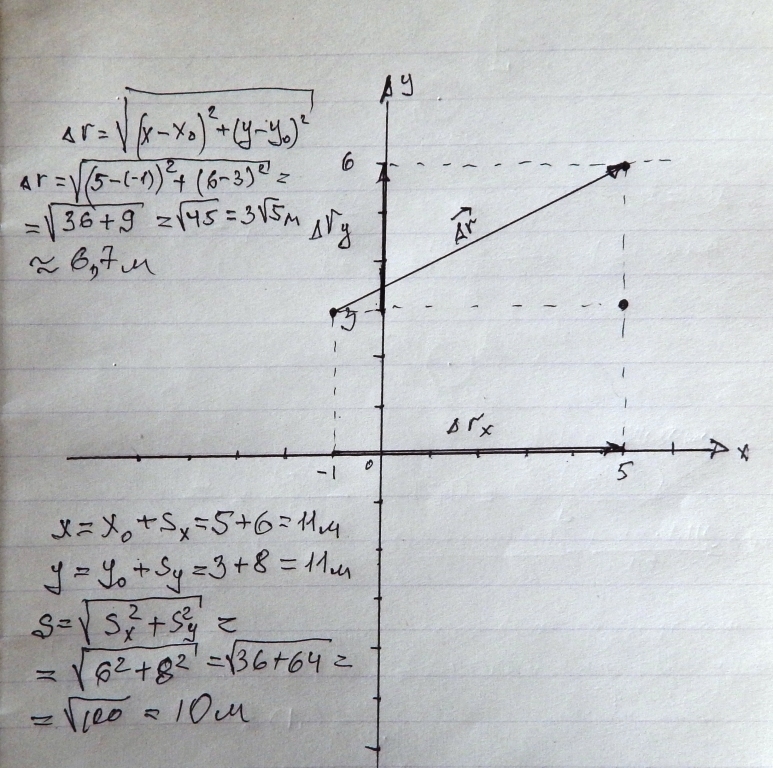 Δr=√(x-x₀)²+(y-y₀)²
Δr=√(5-(-1))²+(6-3)²=
=√36+9 =√45=3√5м
≈6,7м
y
6
Δr_y
Δr
3
Δr_x
-1
0
5
x
x=x₀+s_x=5+6=11м
y=y₀+s_y=3+8=11м
s=√s_x²+s_y² =
=√6²+8² =√36+64=
=√100 = 10м